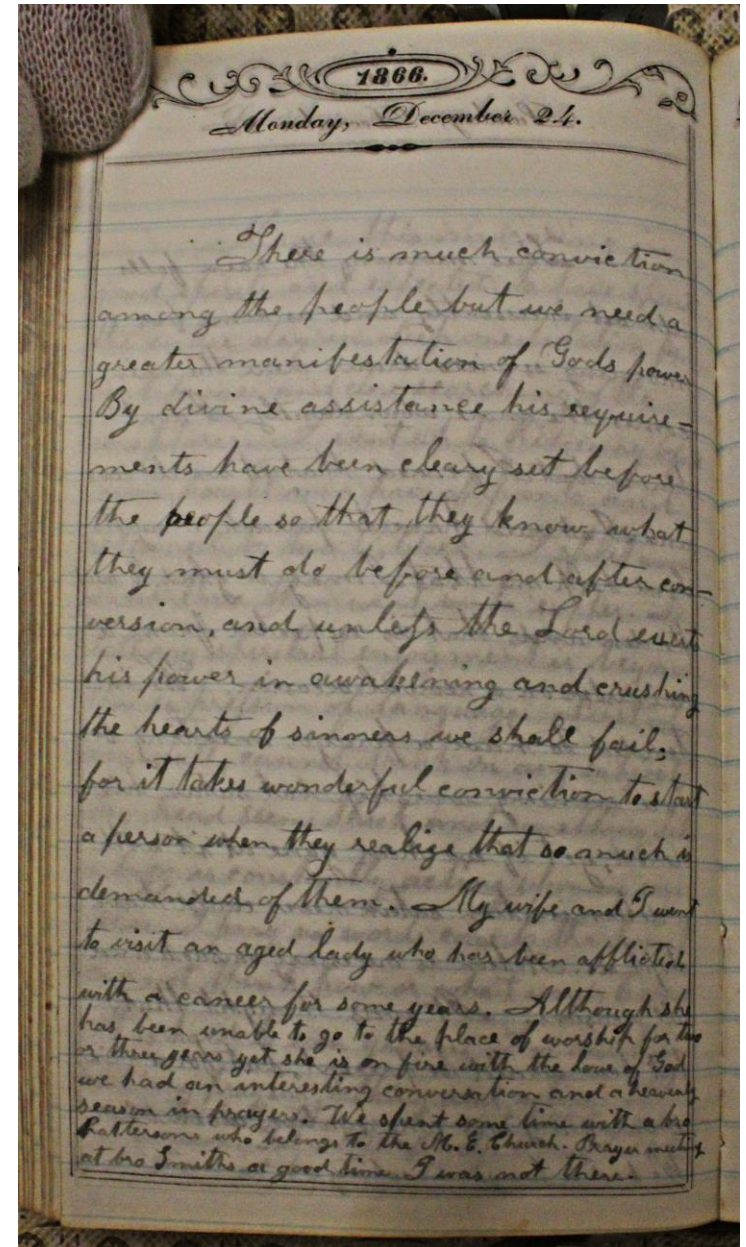 1866.
Monday, December 24.
There is much conviction
among the people but we need a
greater manifestation of Gods power
By divine assistance his require-
ments have been cleary set before
the people so that they know what
they must do before and after con-
version, and unless the Lord exert
his power in awakening and crushing
the hearts of sinners we shall fail,
for it takes wonderful conviction to start
a person when they realize that so much is
demanded of them. My wife and I went
to visit an aged lady who has been afflicted
with a cancer for some years. Although she
has been unable to go to the place of worship for two
or three years yet she is on fire with the love of God
we had an interesting conversation and a heavenly
season in prayers. We spent some time with a bro
Pattersons who belongs to the M. E. Church. Prayer meeting
at bro Smiths a good time I was not there.